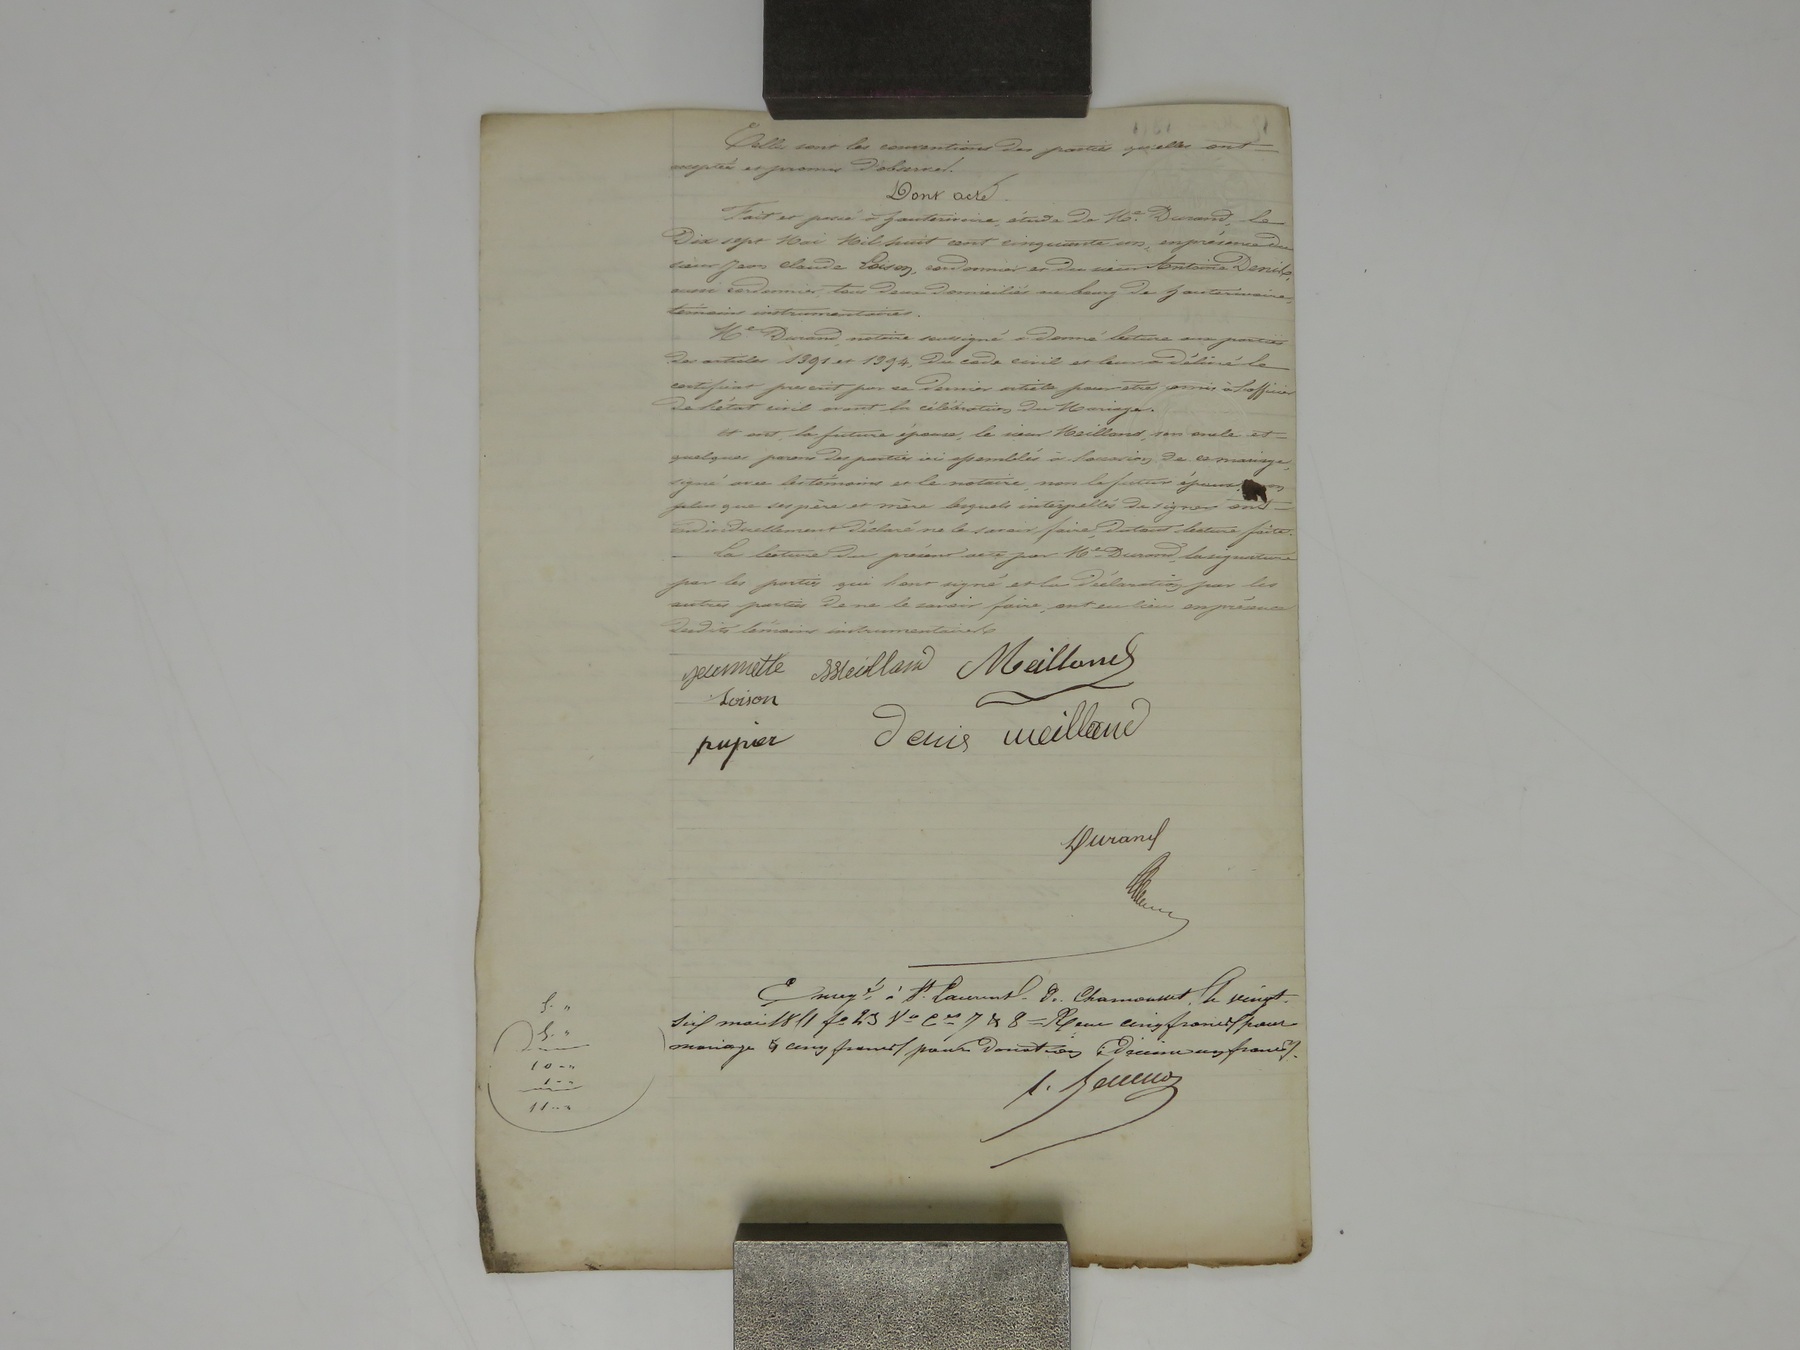 Telles sont les conventions des parties qu'elles ont
acceptées et promis d'observer.
Dont acte.
Fait et passé à hauterivoire, étude de Me. Durand, le
Dix sept Mai Mil huit cent cinquante un, en présence du
sieur Jean Claude Loison, cordonnier et du sieur Antoine Denis,
aussi cordonnier, tous deux domiciliés au bourg de hauterivoire,
témoins instrumentaires.
Me. Durand, notaire soussigné a donné lecture aux parties
des articles 1391 et 1394, du code civil et leur a délivré le
certificat prescrit par ce dernier article pour être remis à l'officier
de l'état civil avant la célébration du Mariage.
Et ont, la future épouse, le sieur Meilland, son oncle et
quelques parens des parties ici assemblés à l'occasion de ce mariage,
signé avec les témoins et le notaire, non le futur époux, non
plus que ses père et mère lesquels interpellés de signer ont
individuellement déclaré ne le savoir faire, d'autant lecture faite.
La lecture du présent acte par Me. Durand, la signature
par les parties qui l'ont signé et la déclaration par les
autres parties de ne le savoir faire, ont eu lieu en présence
desdits témoins instrumentaires
jeannette Meilland Meilland
Loison
pupier Denis meilland
Durand
Enregé. à St. Laurent de Chamousset, le vingt
six mai 1851 fo 23 Vo Ces 7 & 8 = Reçu cinq francs pour
mariage & cinq francs pour donation ; décime un franc.
5. "
5. "
10 - "
1 - "
11 - "